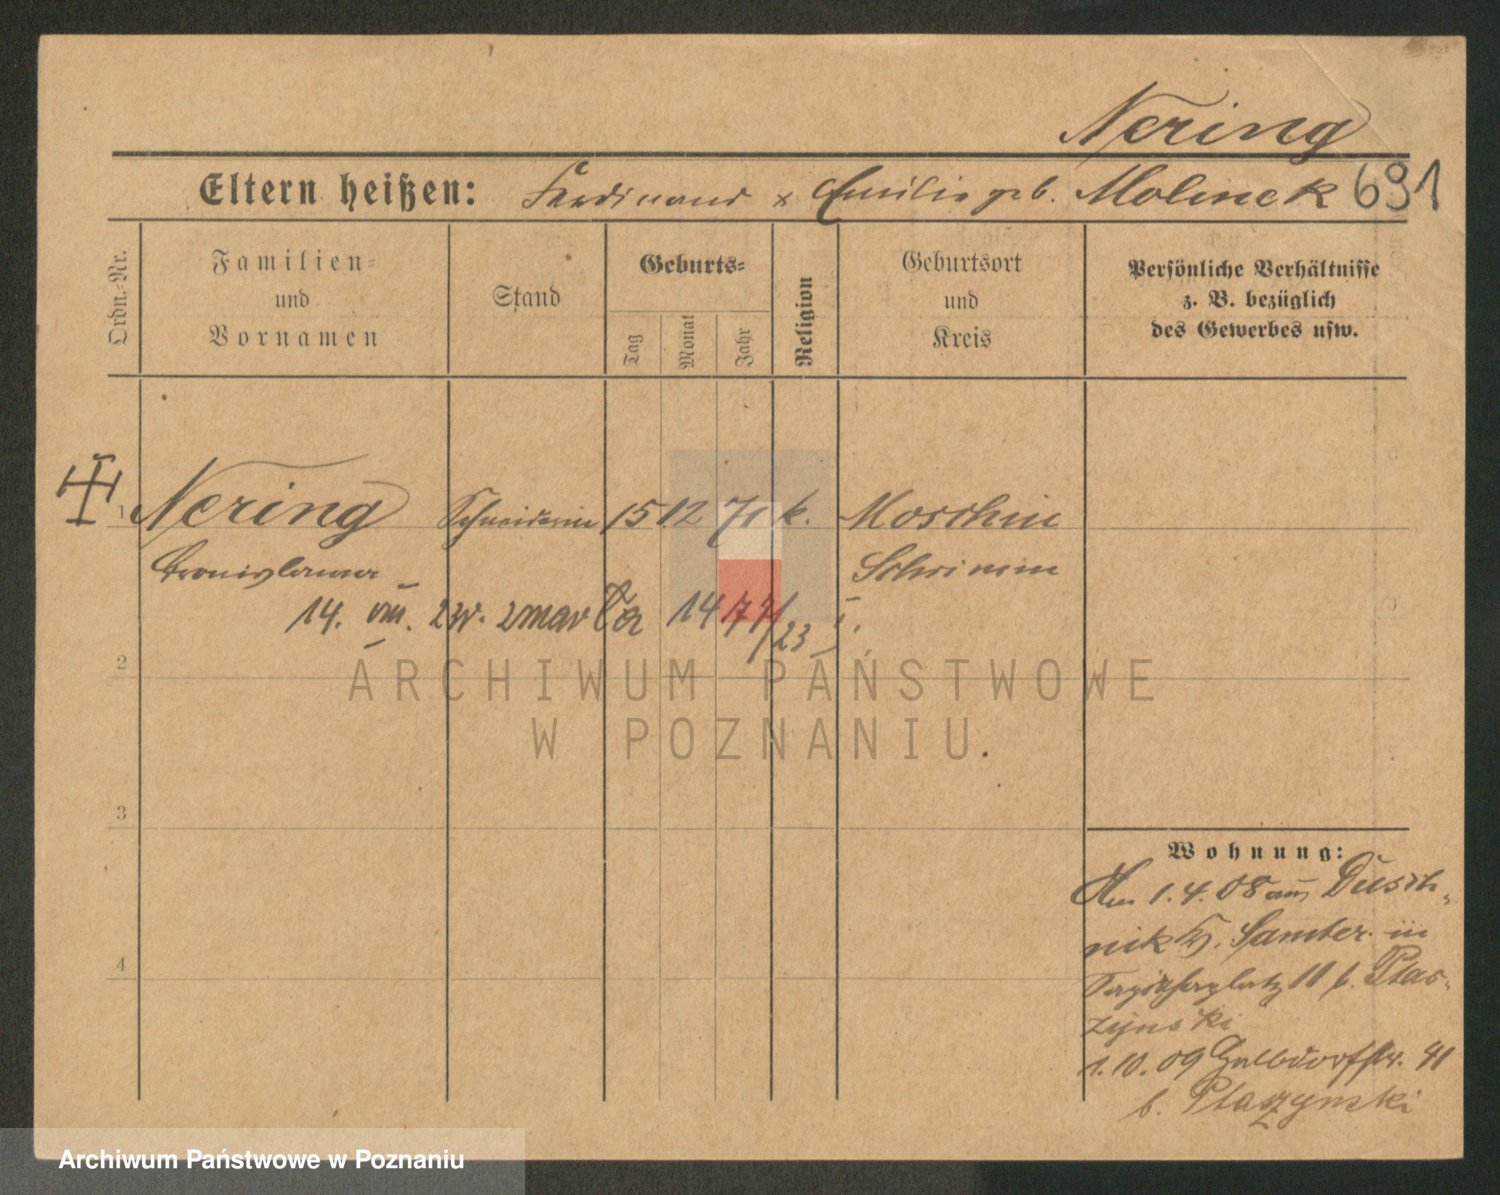 Nering
Eltern heißen: Ferdinand x Emilie geb. Molinek 691
Ordn.-Nr.
Familien- und Vornamen
Stand
Geburts-
Tag Monat Jahr
Religion
Geburtsort und Kreis
Persönliche Verhältnisse z. B. bezüglich des Gewerbes usw.
1 Nering Schneiderin 15 12 71 k. Moschin
Bronislawa Schrimm
14. VIII. 23 zmarła 1477/23 I.
2
ARCHIWUM PAŃSTWOWE
W POZNANIU
3
Wohnung:
Am 1.4.08 aus Dusch-
nik Kr. Samter in
4
platz 11 b. Ptas-
zynski
1.10.09 41
b. Ptaszynski
Archiwum Państwowe w Poznaniu